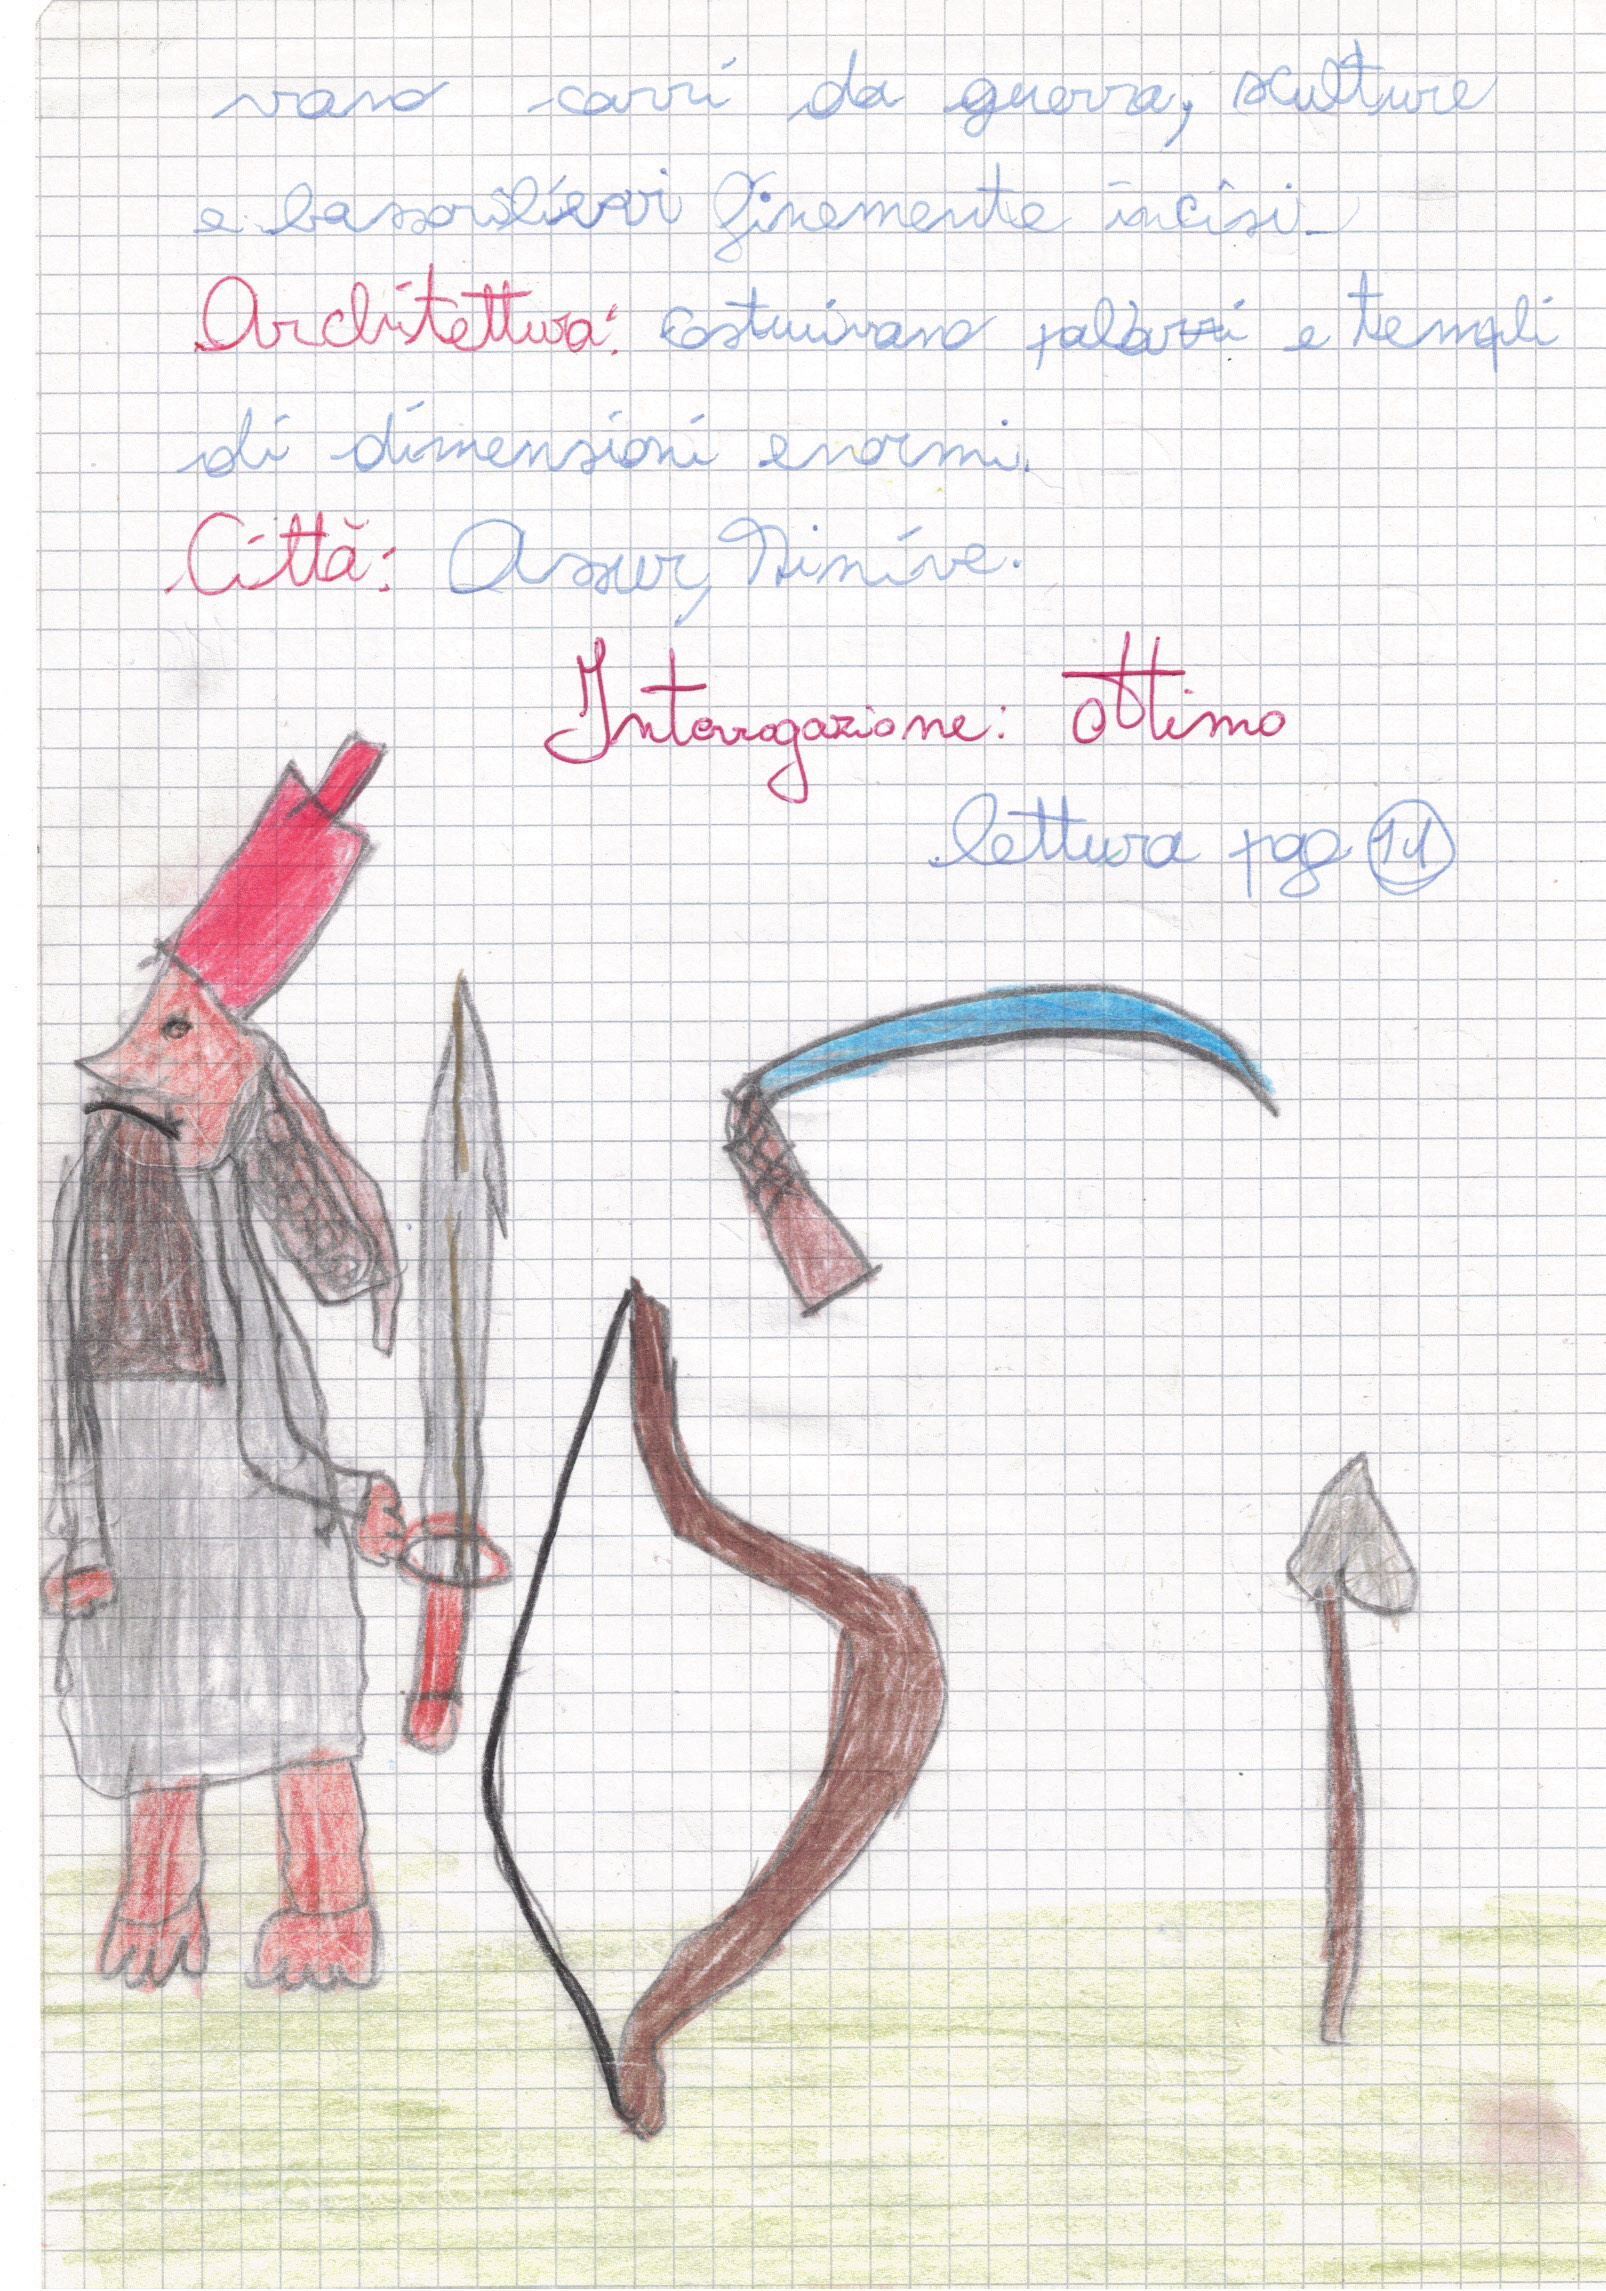 vano carri da guerra, sculture
e bassorilievi finemente incisi.
Architettura: costruivano palazzi e templi
di dimensioni enormi.
Città: Assur, Ninive.
Interrogazione: ottimo
lettura pag 11